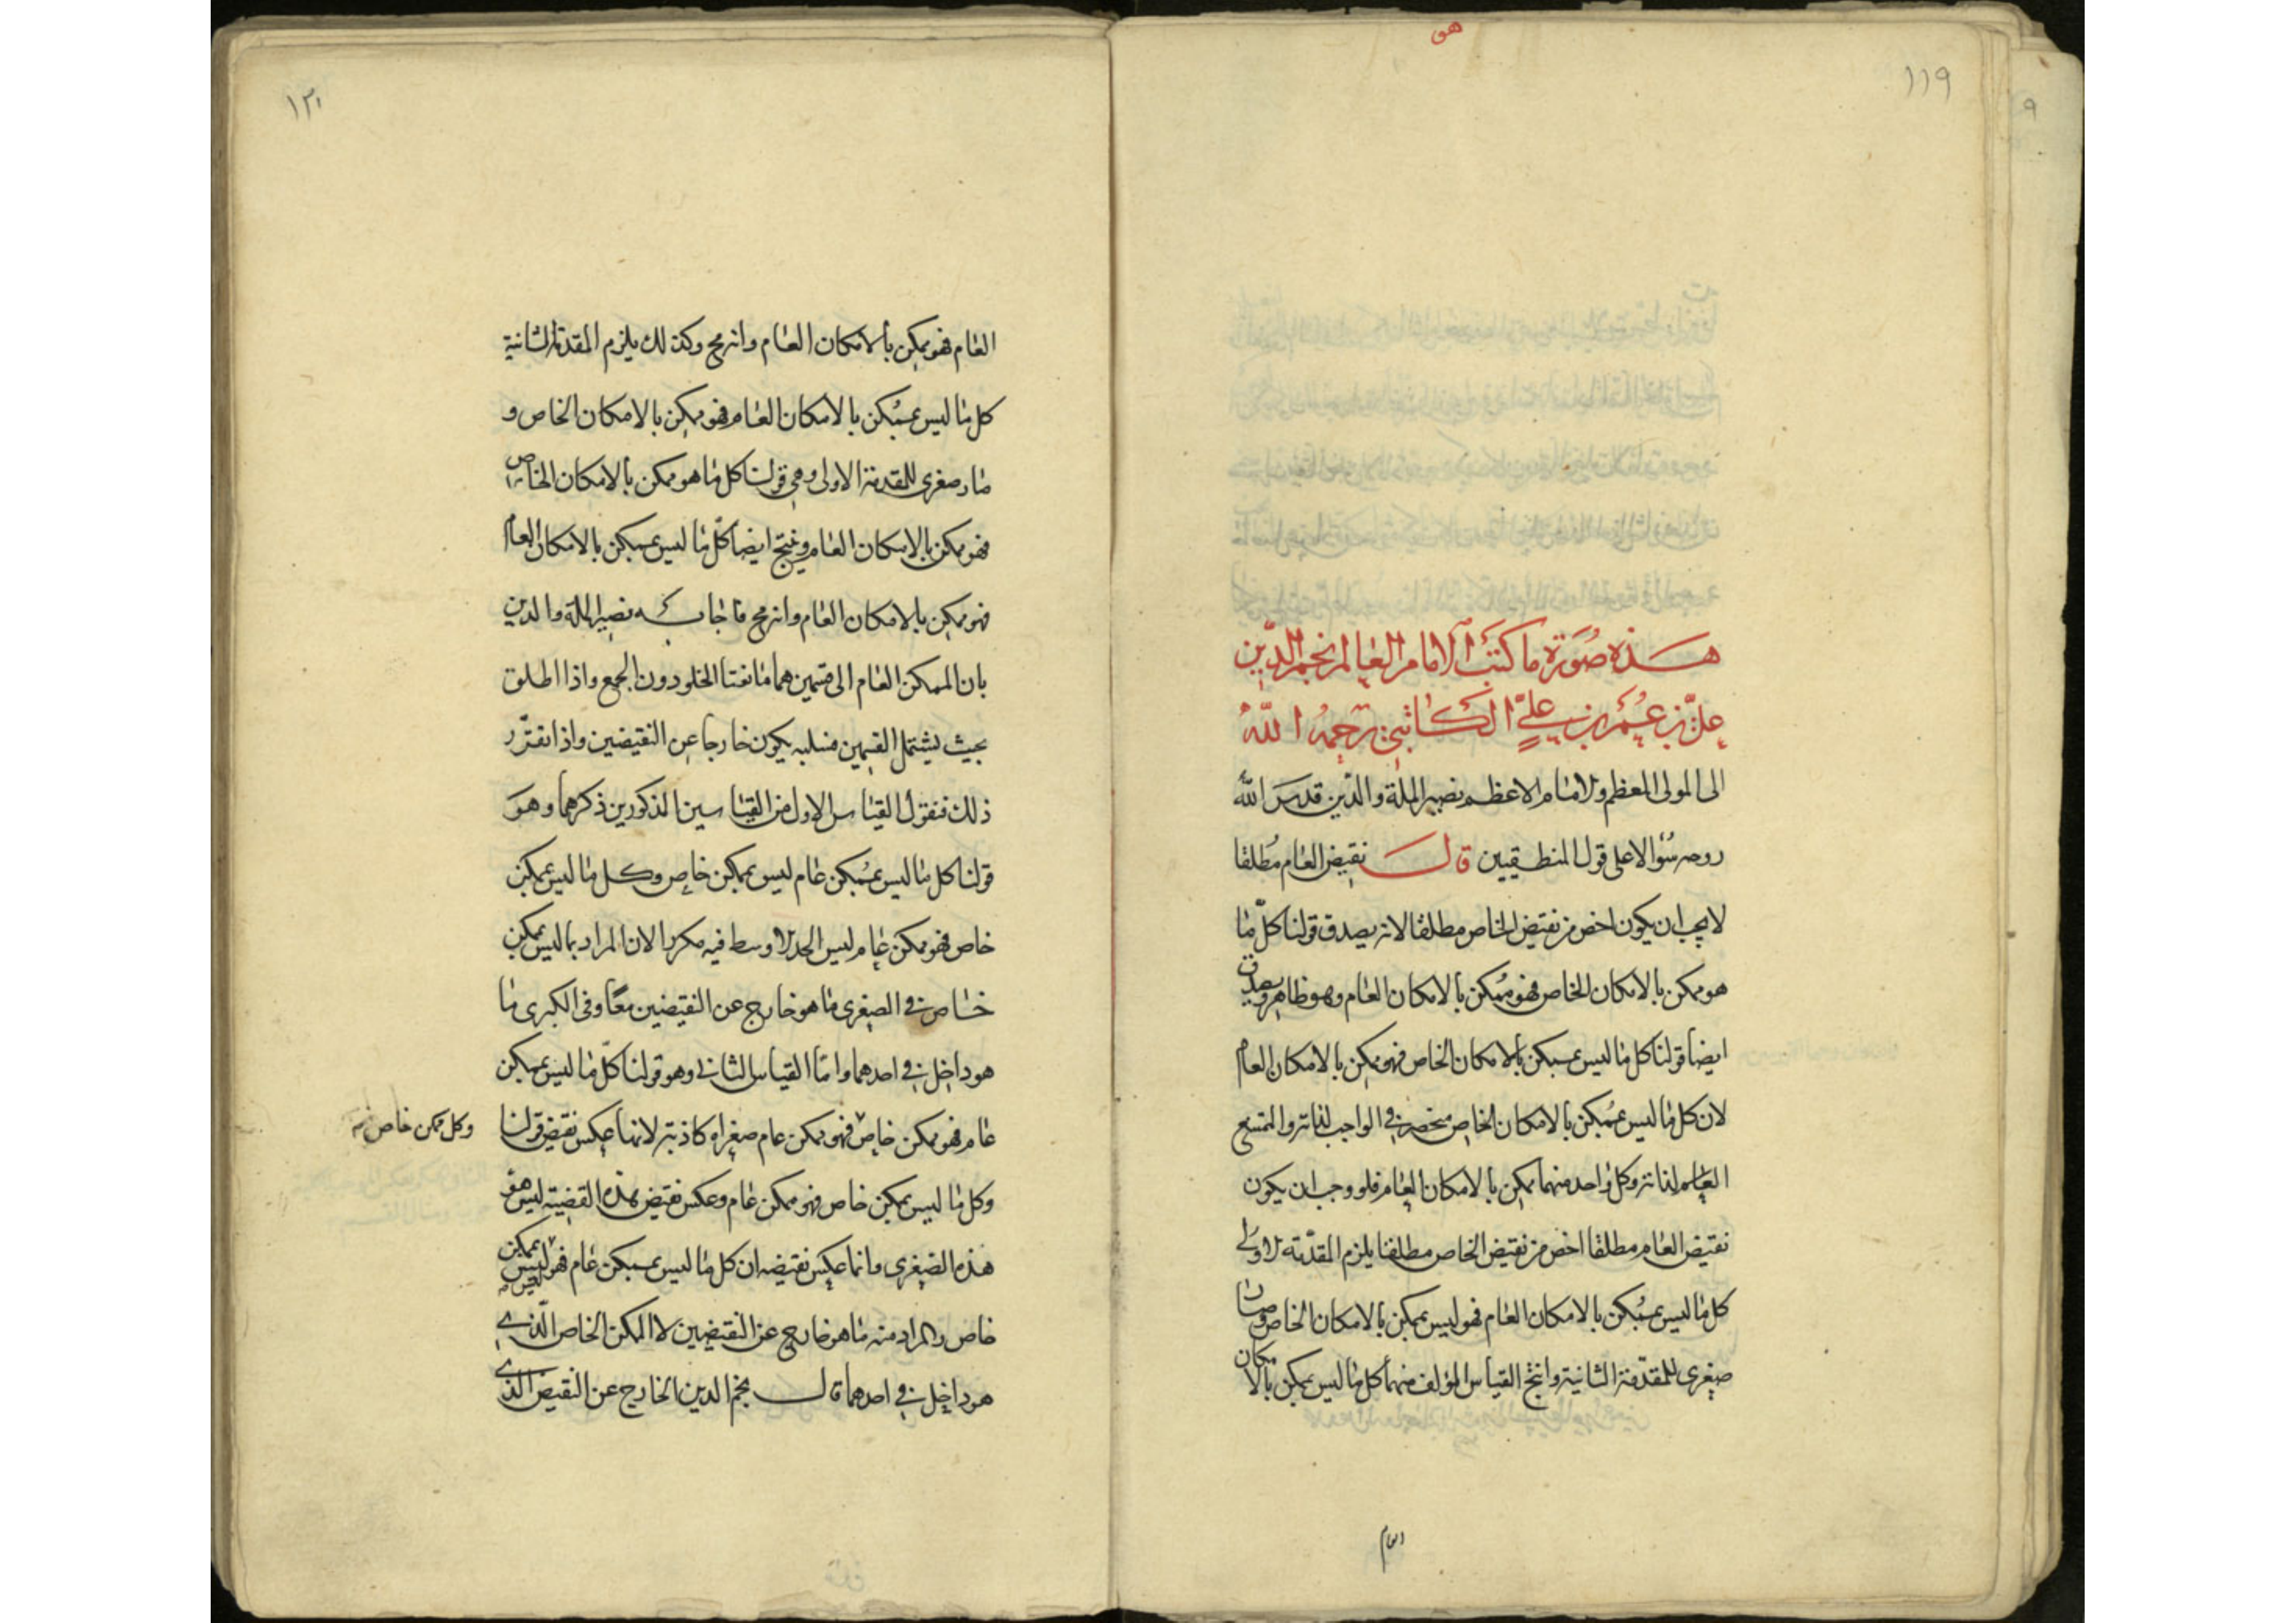 هو
١١٩
هذه صورة ما كتب الامام العالم نجم الدين
علي بن عمر بن علي الكاتبي رحمه الله
الى المولى المعظم والامام الاعظم نصير الملة والدين قدس الله
روحه سؤالا على قول المنطقيين قال نقيض العام مطلقا
لا يجب ان يكون اخص من نقيض الخاص مطلقا لانه يصدق قولنا كل ما
هو ممكن بالامكان الخاص فهو ممكن بالامكان العام وهو ظاهر ويصدق
ايضا قولنا كل ما ليس بممكن بالامكان الخاص فهو ممكن بالامكان العام
لان كل ما ليس بممكن بالامكان الخاص منحصر في الواجب لذاته والممتنع
العام لذاته وكل واحد منهما ممكن بالامكان العام فلو وجب ان يكون
نقيض العام مطلقا اخص من نقيض الخاص مطلقا يلزم المقدمة الاولى
كل ما ليس بممكن بالامكان العام فهو ليس بممكن بالامكان الخاص وصارت
صغرى للمقدمة الثانية وانتج القياس المؤلف منهما كل ما ليس بممكن بالامكان
العام
١٢٠
العام فهو ممكن بالامكان العام وانه مح وكذلك يلزم المقدمة الثانية
كل ما ليس بممكن بالامكان العام فهو ممكن بالامكان الخاص و
صار صغرى للمقدمة الاولى وهي قولنا كل ما هو ممكن بالامكان الخاص
فهو ممكن بالامكان العام وينتج ايضا كل ما ليس بممكن بالامكان العام
فهو ممكن بالامكان العام وانه مح فاجاب نصير الملة والدين
بان الممكن العام الى قسمين هما مانعتا الخلو دون الجمع واذا اطلق
بحيث يشتمل القسمين فسلبه يكون خارجا عن النقيضين واذا تقرر
ذلك فنقول القياس الاول من القياسين المذكورين ذكرهما وهو
قولنا كل ما ليس بممكن عام ليس بممكن خاص وكل ما ليس بممكن
خاص فهو ممكن عام ليس الحد الاوسط فيه مكررا لان المراد بما ليس بممكن
خاص في الصغرى ما هو خارج عن النقيضين معا وفي الكبرى ما
هو داخل في احدهما واما القياس الثاني وهو قولنا كل ما ليس بممكن
عام فهو ممكن خاص فهو ممكن عام صغراه كاذبة لانها عكس نقيض قولنا
وكل ممكن خاص
وكل ما ليس بممكن خاص فهو ممكن عام وعكس نقيض هذه القضية ليس هو
هذه الصغرى وانما عكس نقيضه ان كل ما ليس بممكن عام فهو ليس بممكن
خاص والمراد منه ما هو خارج عن النقيضين لا الممكن الخاص الذي
هو داخل في احدهما قال نجم الدين الخارج عن النقيض الذي